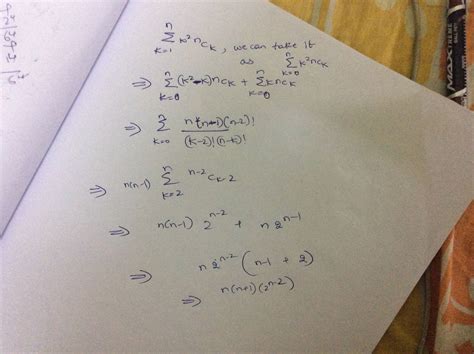 n
Σ k² nCk, we can take it
k=1
as n Σ k=0 k² nCk
⇒ n Σ k=0 (k²-k) nCk + n Σ k=0 k nCk
⇒ n Σ k=0 n(n-1)(n-2)! / (k-2)!(n-k)!
⇒ n(n-1) n Σ k=2 n-2 C k-2
⇒ n(n-1) 2^{n-2} + n 2^{n-1}
⇒ n 2^{n-2} (n-1 + 2)
⇒ n(n+1)(2^{n-2})